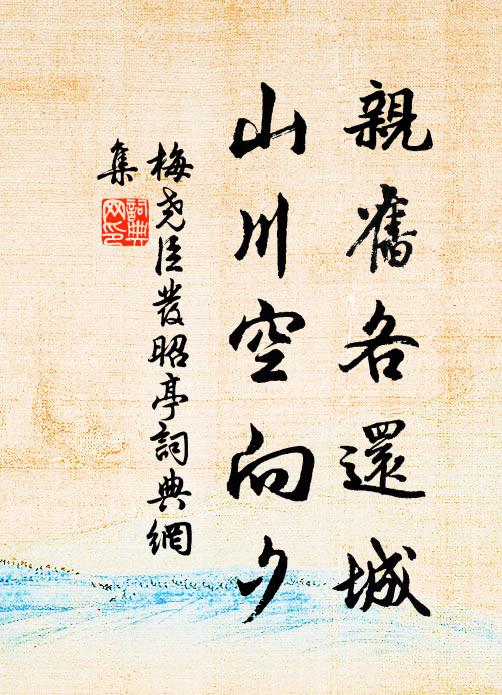 親舊各還城
山川空向夕
梅堯臣發昭亭詞典網
集
詞典
网印